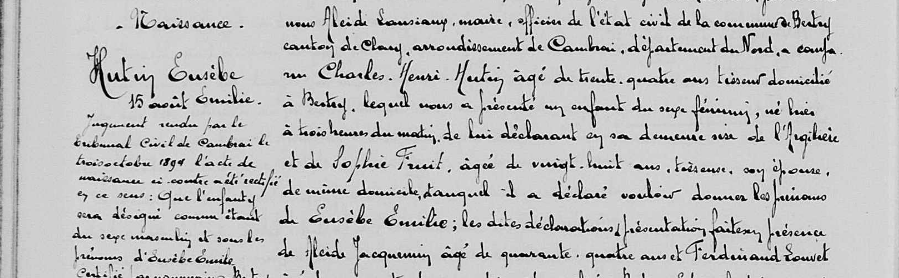 - Naissance.
Hutin Eusèbe
15 août Emilie.
Jugement rendu par le
tribunal Civil de Cambrai le
trois octobre 1894 l'acte de
naissance ci-contre a été rectifié
en ce sens: Que l'enfant
sera désigné comme étant
du sexe masculin et sous les
prénoms d'Eusèbe Emile
Certifié
nous Alcide Lansiaux, maire, officier de l'état civil de la commune de Bertry
canton de Clary, arrondissement de Cambrai, département du Nord, a compa-
ru Charles-Henri-Hutin âgé de trente-quatre ans tisseur domicilié
à Bertry, lequel nous a présenté un enfant du sexe féminin, né hier
à trois heures du matin, de lui déclarant en sa demeure sise de
et de Sophie Fruit, âgée de vingt-huit ans, tisseuse, son épouse,
de même domicile, auquel il a déclaré vouloir donner les prénoms
de Eusèbe Emilie; les dites déclarations, présentation faites en présence
de Alcide Jacquemin âgé de quarante-quatre ans et Ferdinand Louvet